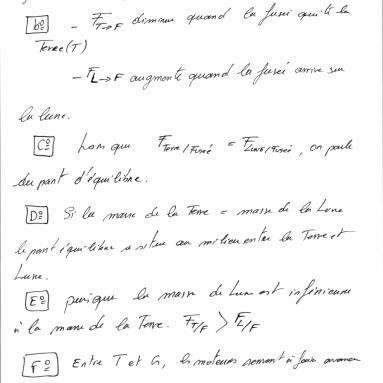 b° - F T→F diminue quand la fusée quitte la
Terre (T)
- F L→F augmente quand la fusée arrive sur
la lune.
C° Lorsque F Terre/Fusée = F Lune/Fusée, on parle
du point d'équilibre.
D° Si la masse de la Terre = masse de la Lune
le point équilibre se situe au milieu entre la Terre et
Lune.
E° puisque la masse de Lune est inférieure
à la masse de la Terre. F T/F > F L/F
F° Entre T et G, les moteurs servent à faire avancer